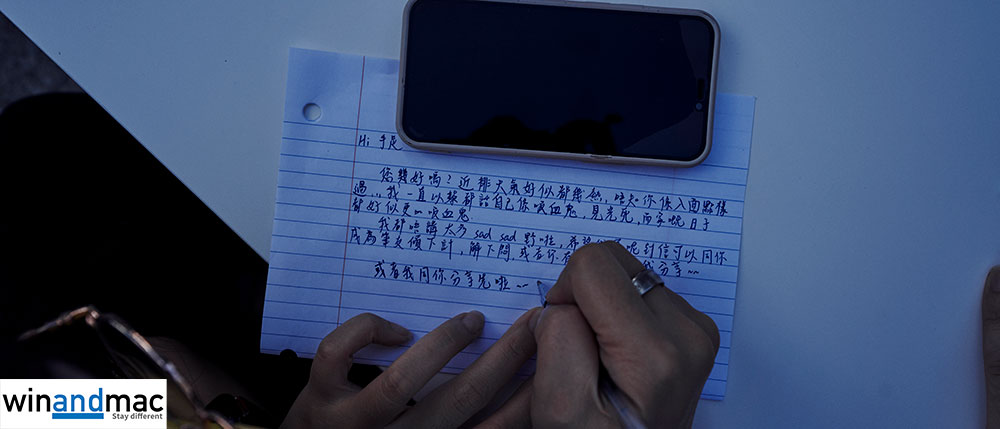 Hi 手足
您幾好嗎？近排天氣好似都幾熱，唔知你係入面點樣
過... 我一直以嚟都話自己係吸血鬼，見光死，而家嘅日子
都好似更... 吸血鬼
我都唔講太多 sad sad 野啦，希望 呢封信可以同你
成為筆友傾下計，解下悶，或者你 分享~~
或者我同你分享先啦~~
winandmac
Stay different